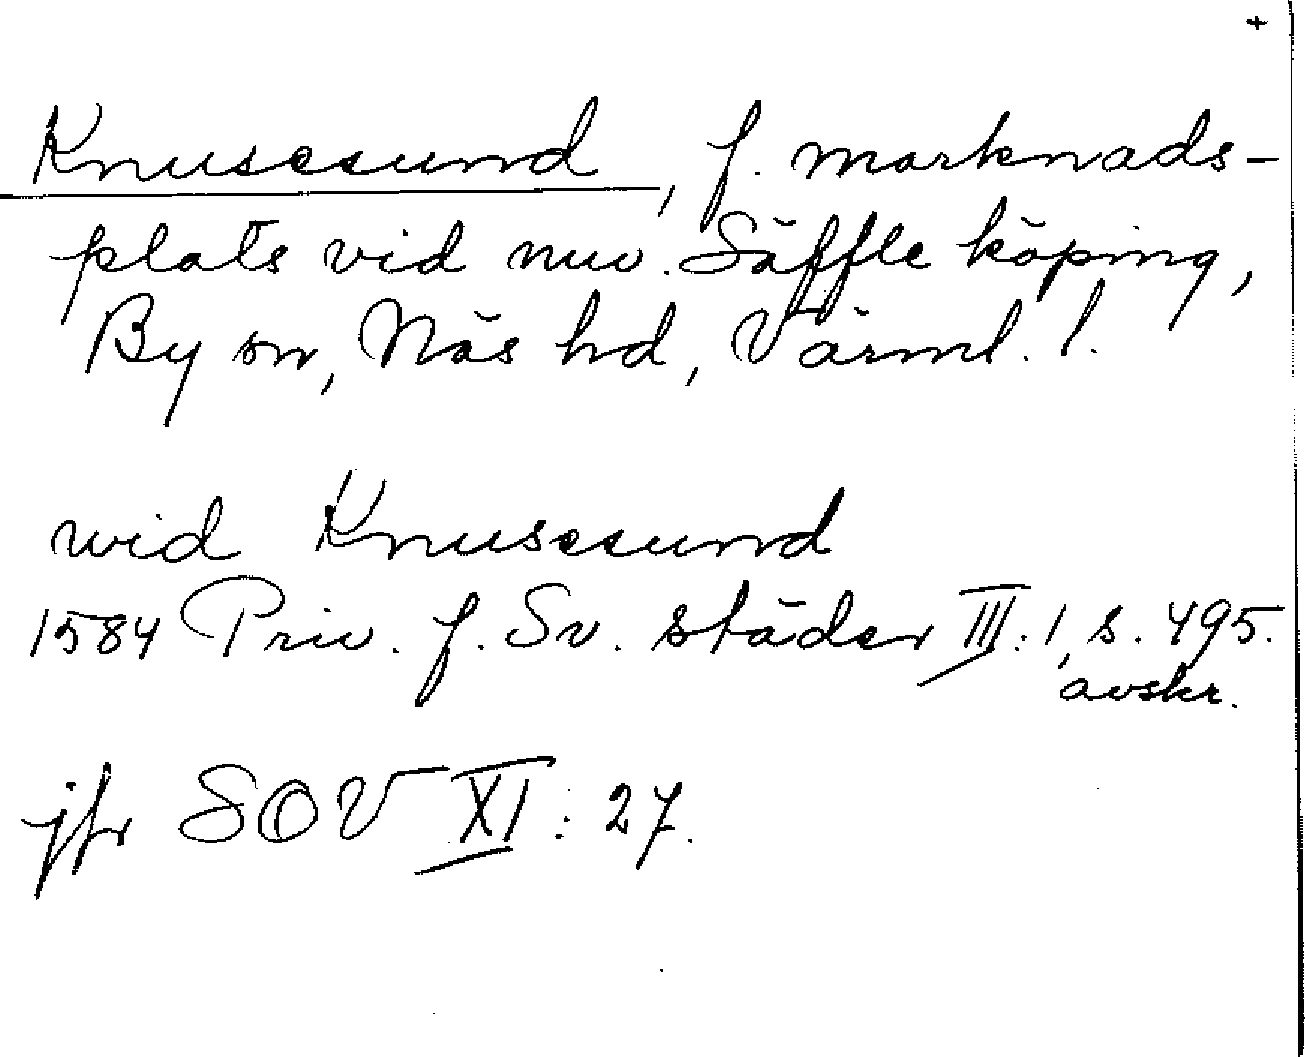 +
Knusesund, f. marknads-
plats vid nuv. Säffle köping,
By sn, Näs hd, Värml. l.
wid Knusesund
1584 Priv. f. Sv. städer III:1, s. 495.
avskr.
jfr SOV XI: 27.